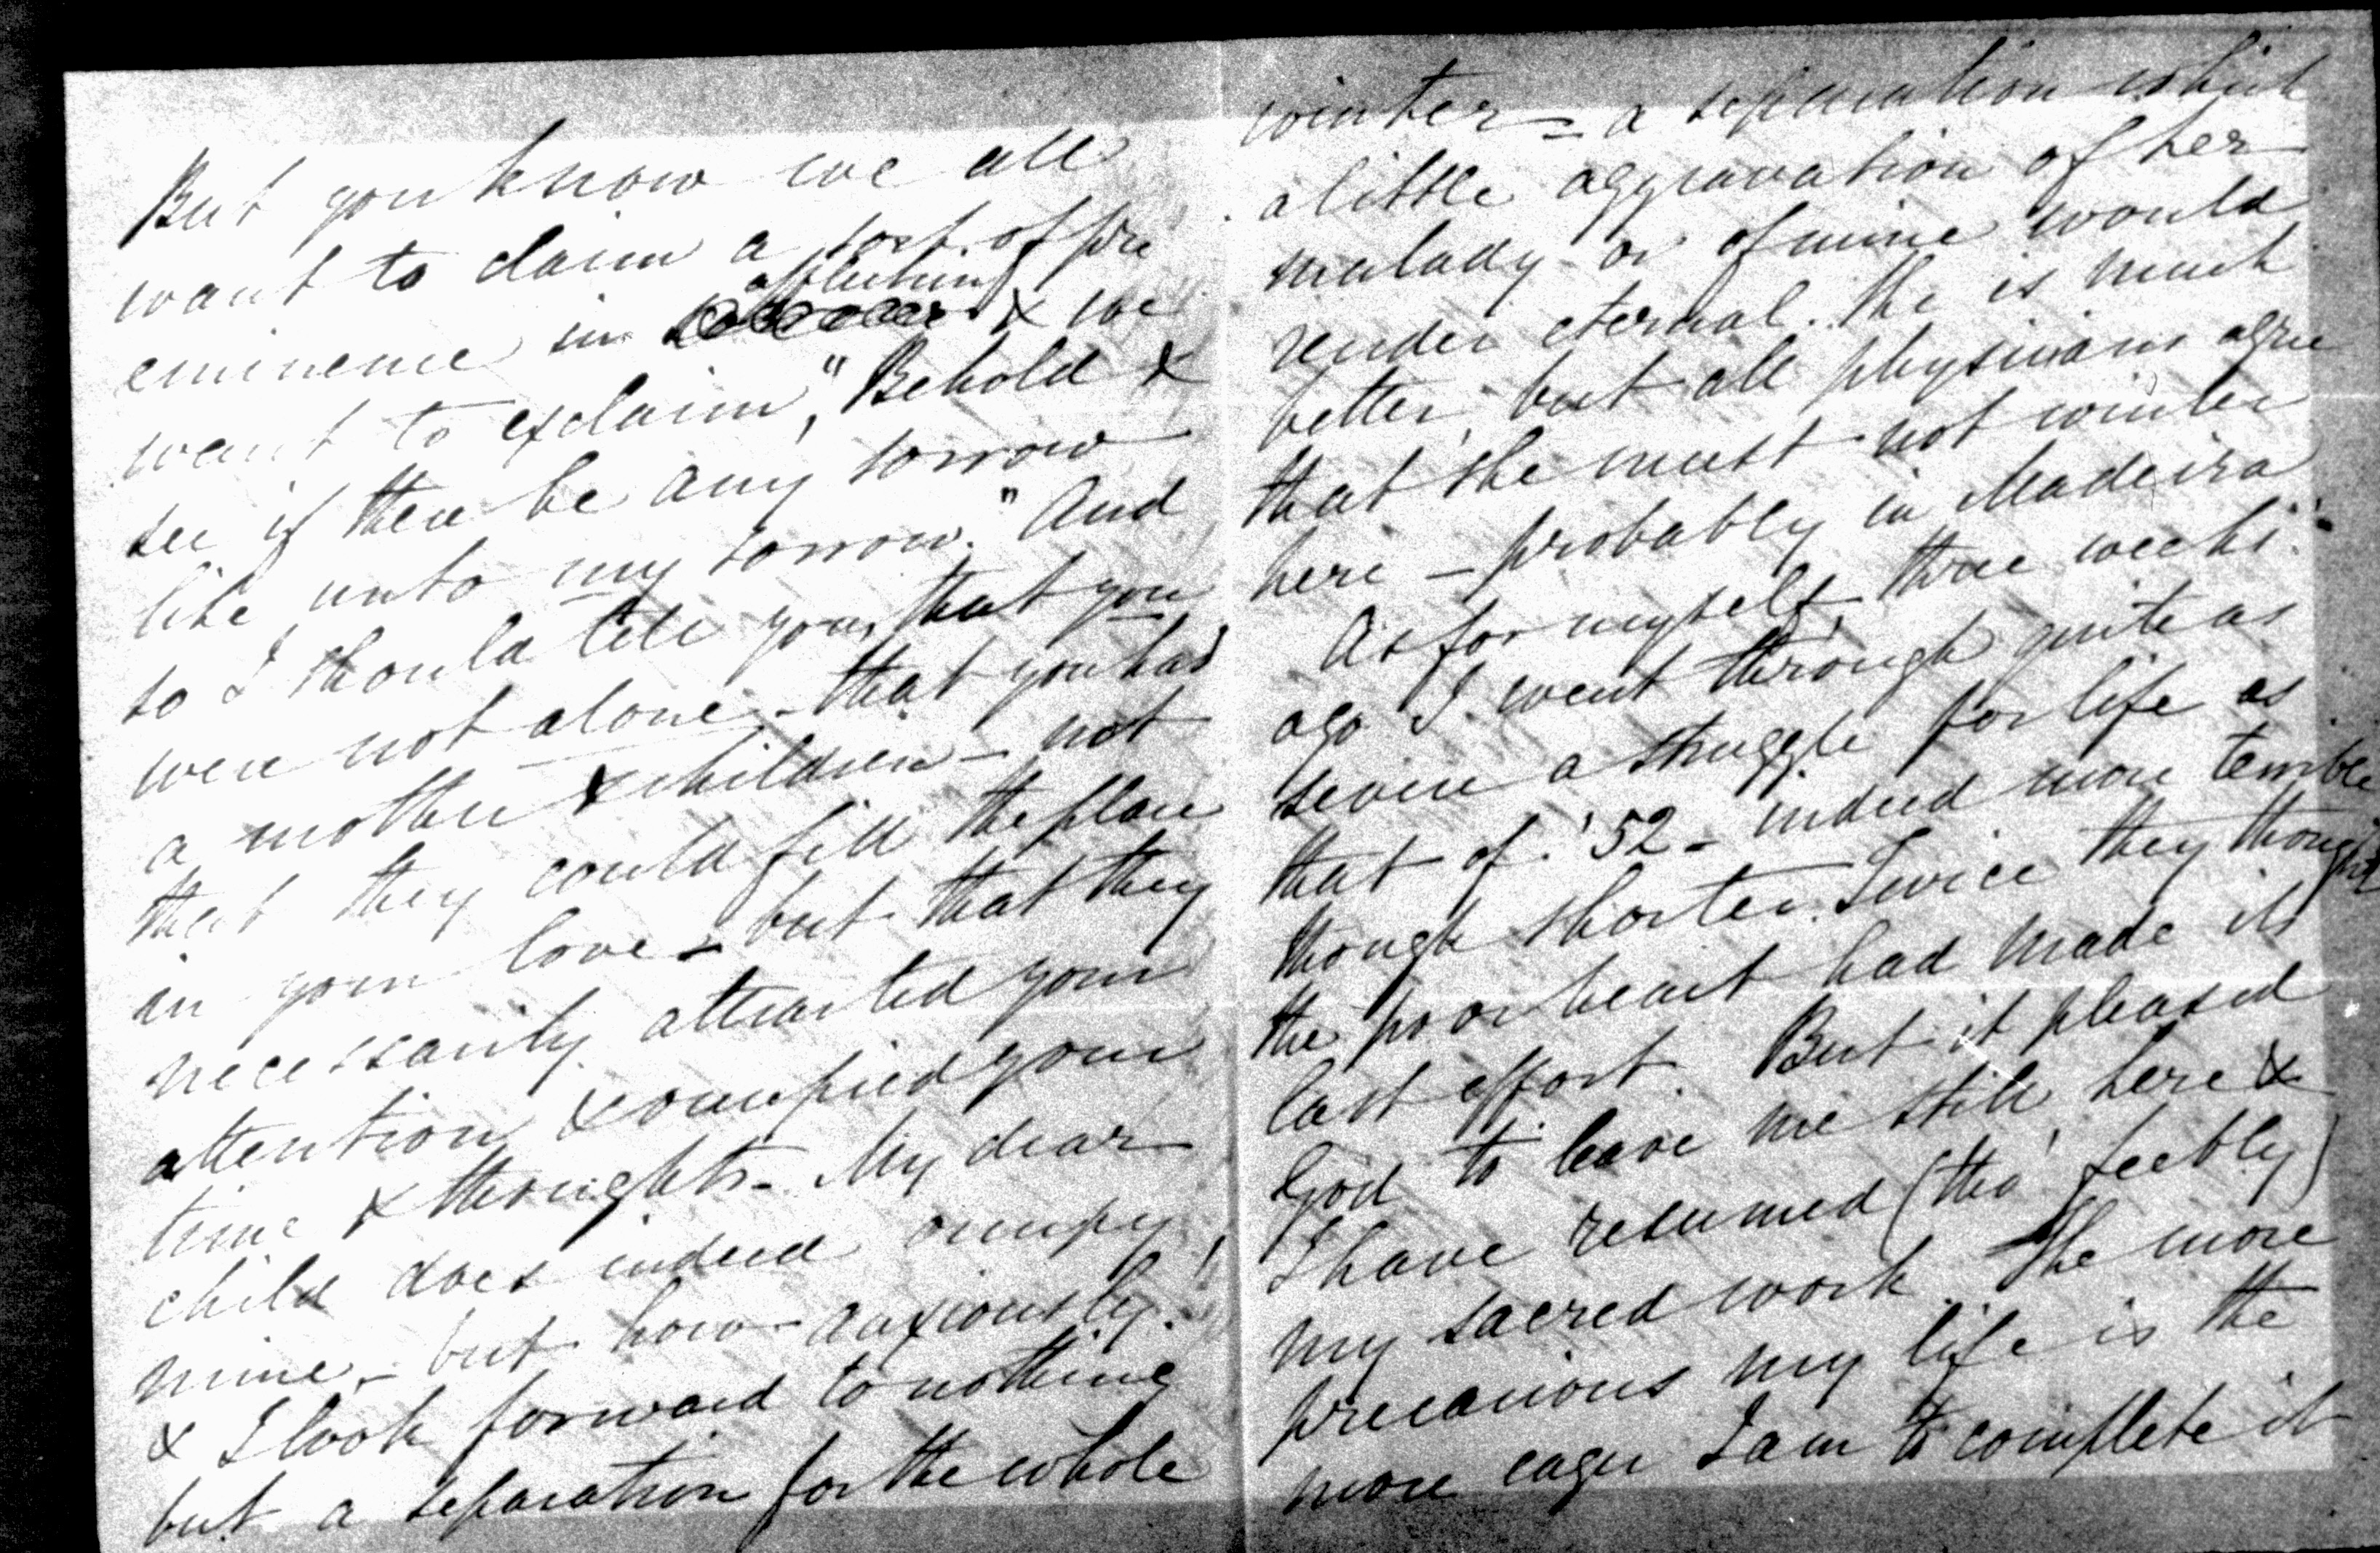 But you know we all
want to claim a sort of pre
eminence in affliction & we
want to exclaim, "Behold &
see if there be any sorrow
like unto my sorrow." And
so I should tell you, that you
were not alone - that you had
a mother & children - not
that they could fill the place
in your love - but that they
necessarily attracted your
attention & occupied your
time & thoughts - My dear
child does indeed occupy
mine - but how anxiously!
& I look forward to nothing
but a separation for the whole
winter - a separation which
a little aggravation of her
malady or of mine would
render eternal. She is much
better, but all physicians agree
that she must not winter
here - probably in Madeira
As for myself, three weeks
ago I went through quite as
severe a struggle for life as
that of '52 - indeed more terrible
though shorter. Twice they thought
the poor heart had made its
last effort. But it pleased
God to leave me still here &
I have resumed (tho' feebly)
my sacred work. The more
precarious my life is the
more eager I am to complete it